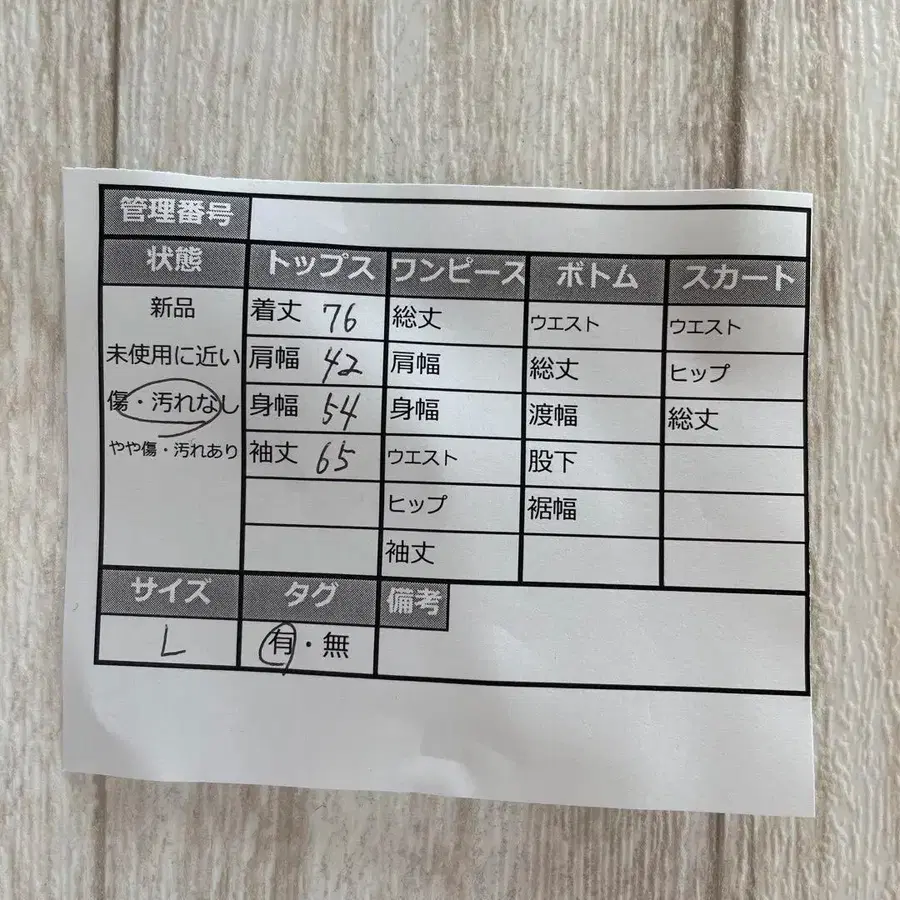 管理番号
状態 トップス ワンピース ボトム スカート
新品 着丈 76 総丈 ウエスト ウエスト
未使用に近い 肩幅 42 肩幅 総丈 ヒップ
傷・汚れなし 身幅 54 身幅 渡幅 総丈
やや傷・汚れあり 袖丈 65 ウエスト 股下
ヒップ 裾幅
袖丈
サイズ タグ 備考
L 有・無